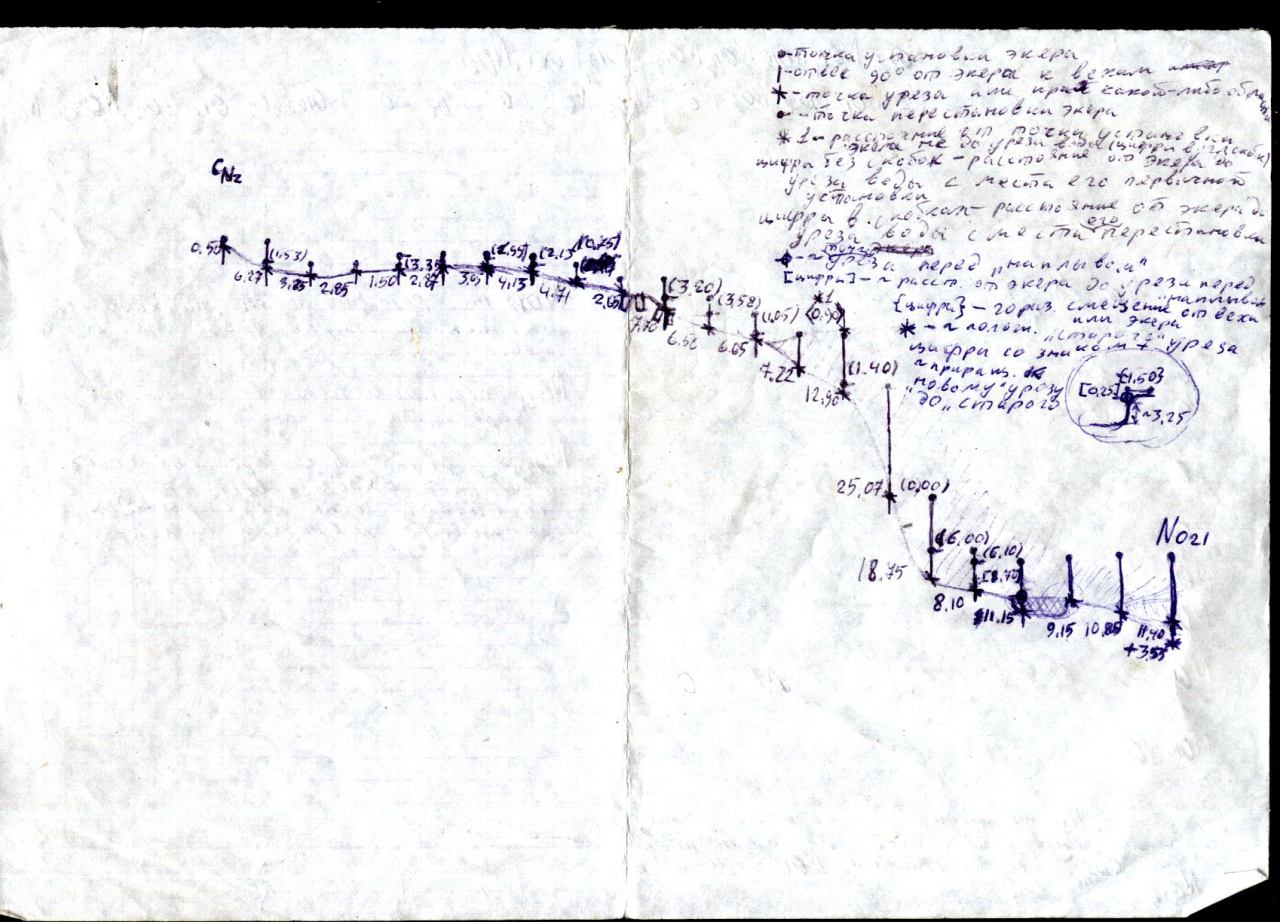 точка установки экера
отвес 90° от экера к вехам
точка уреза или края какого-либо
точка перестановки экера
*1 - расстояние от точки установки
экера не до уреза воды (цифры в
цифры без скобок - расстояние от экера до
уреза воды с места его первичной
установки
цифры в скобках - расстояние от экера до
уреза воды с места его перестановки
уреза перед "наплывом"
[цифры] - ~ расст. от экера до уреза перед
"наплывом"
{цифры} - гориз. смещение от вехи
или экера
* - ~ полож. "старого" уреза
цифры со знаком +
~ приращ. к
"новому" урезу
до "старого"
{1.50}
[0,25]
~3,25
N2
0.50
(1,53)
6.27
3,85
2.85
1.50
(3.35
2.87
4,13
(2.13
4.71
2,65
7.70
(3,20)
6.56
(3,58)
6.05
(1,05)
7.22
*1
12,90
(1.40)
25,07
(0,00)
18.75
(6.00)
8.10
(6,10)
[8,75
11.15
9.15
10.85
11,40
+3,55
No21